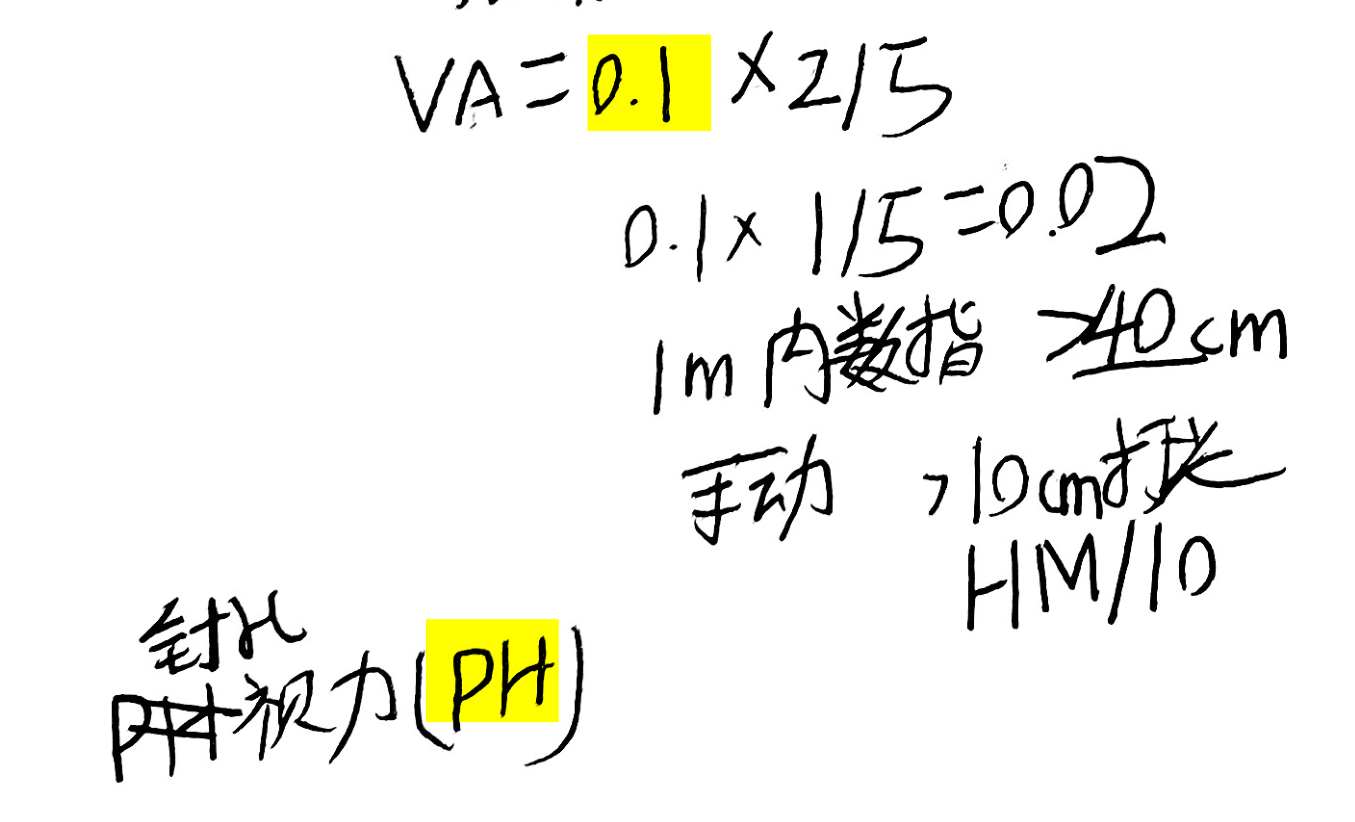 VA=0.1×2/5
0.1×1/5=0.02
1m内数指 >40cm
手动 >10cm
HM/10
针孔
视力(PH)